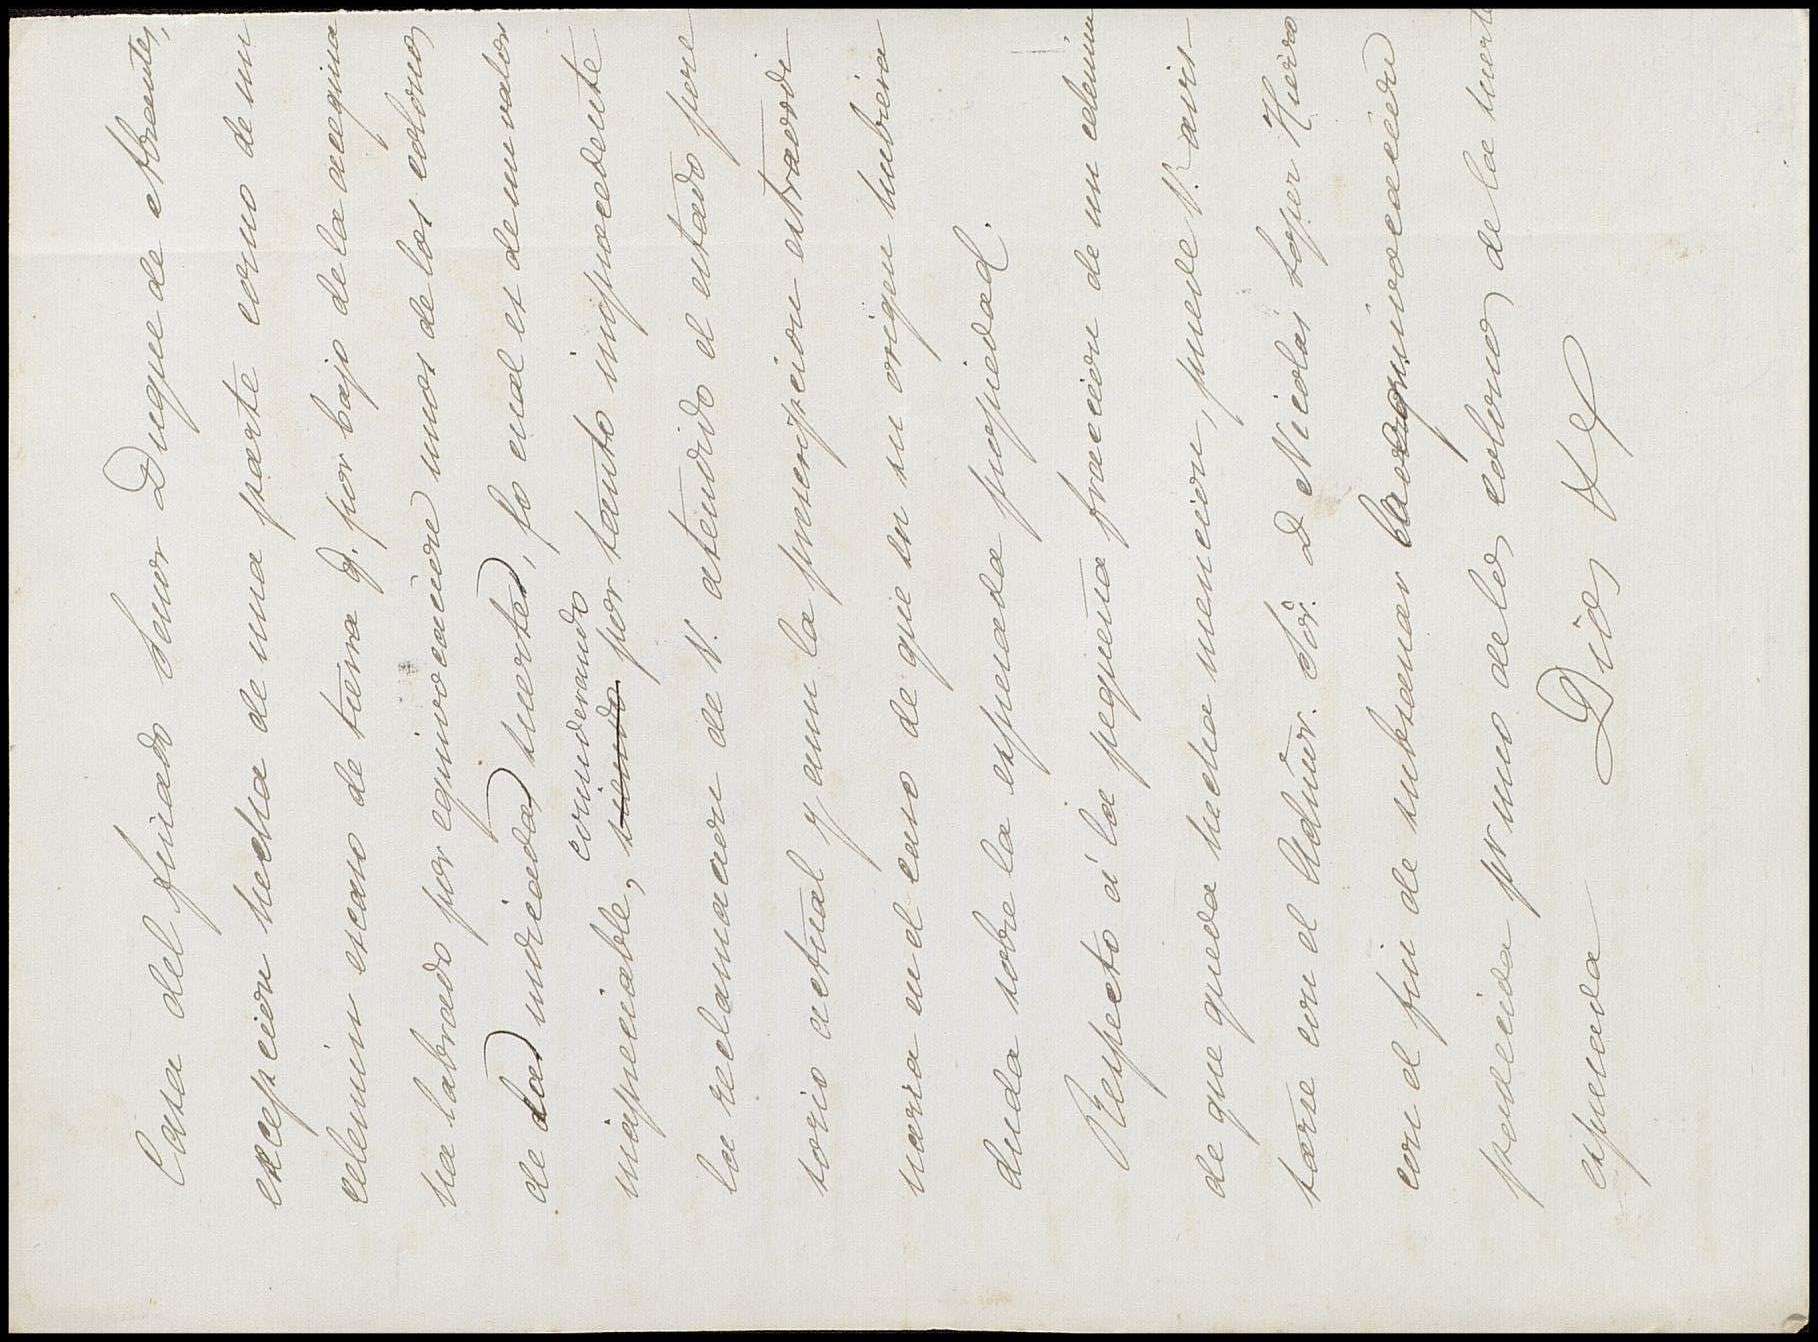 Casa del finado Señor Duque de Abrantes,
excepcion hecha de una parte como de un
celemin escaso de tierra q. por bajo de la acequia
ha labrado por equivocacion unos de los colonos
de las indicadas suertes, lo cual es de un valor
considerando
inapreciable, siendo por tanto improcedente
la reclamacion de V. atendido el estado pose
sorio actual y aun la prescripcion extraordi
naria en el caso de que en su origen hubiera
duda sobre la expresada propiedad.
Respecto á la pequeña fraccion de un celemin
de que queda hecha mencion, puede V. avis-
tarse con el Admor. Sor. D Nicolás Lopez Hierro
con el fin de subsanar la equivocacion
padecida pr uno de los colonos de la suerte
expresada
Dios &